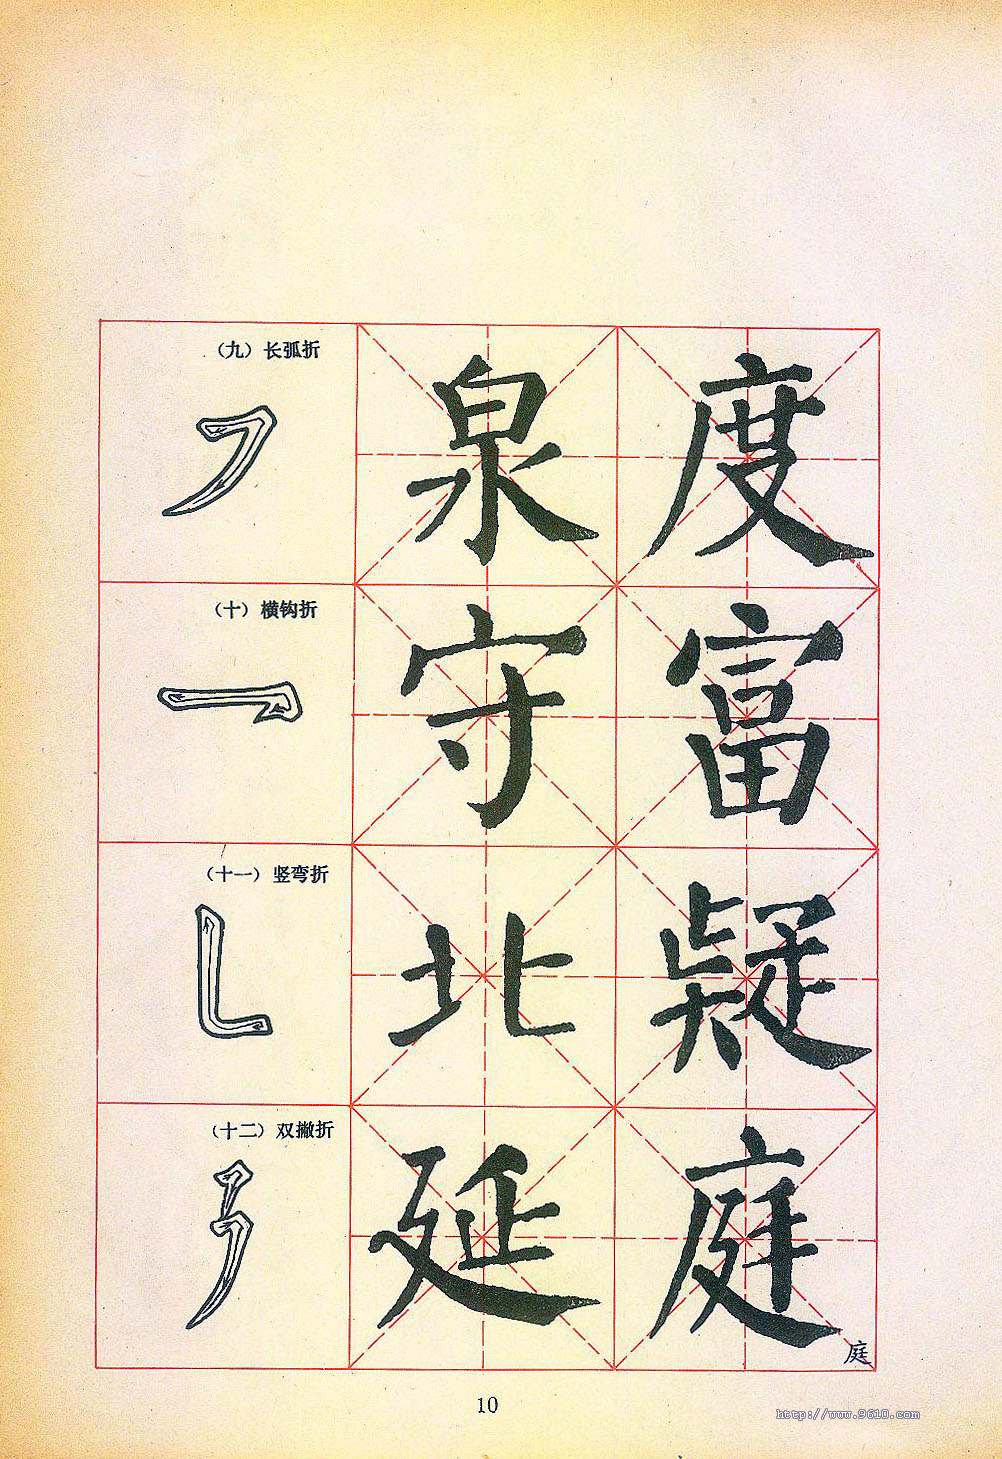 （九）长弧折
泉 度
（十）横钩折
守 富
（十一）竖弯折
北 疑
（十二）双撇折
延 庭
庭
10
http://www.9610.com